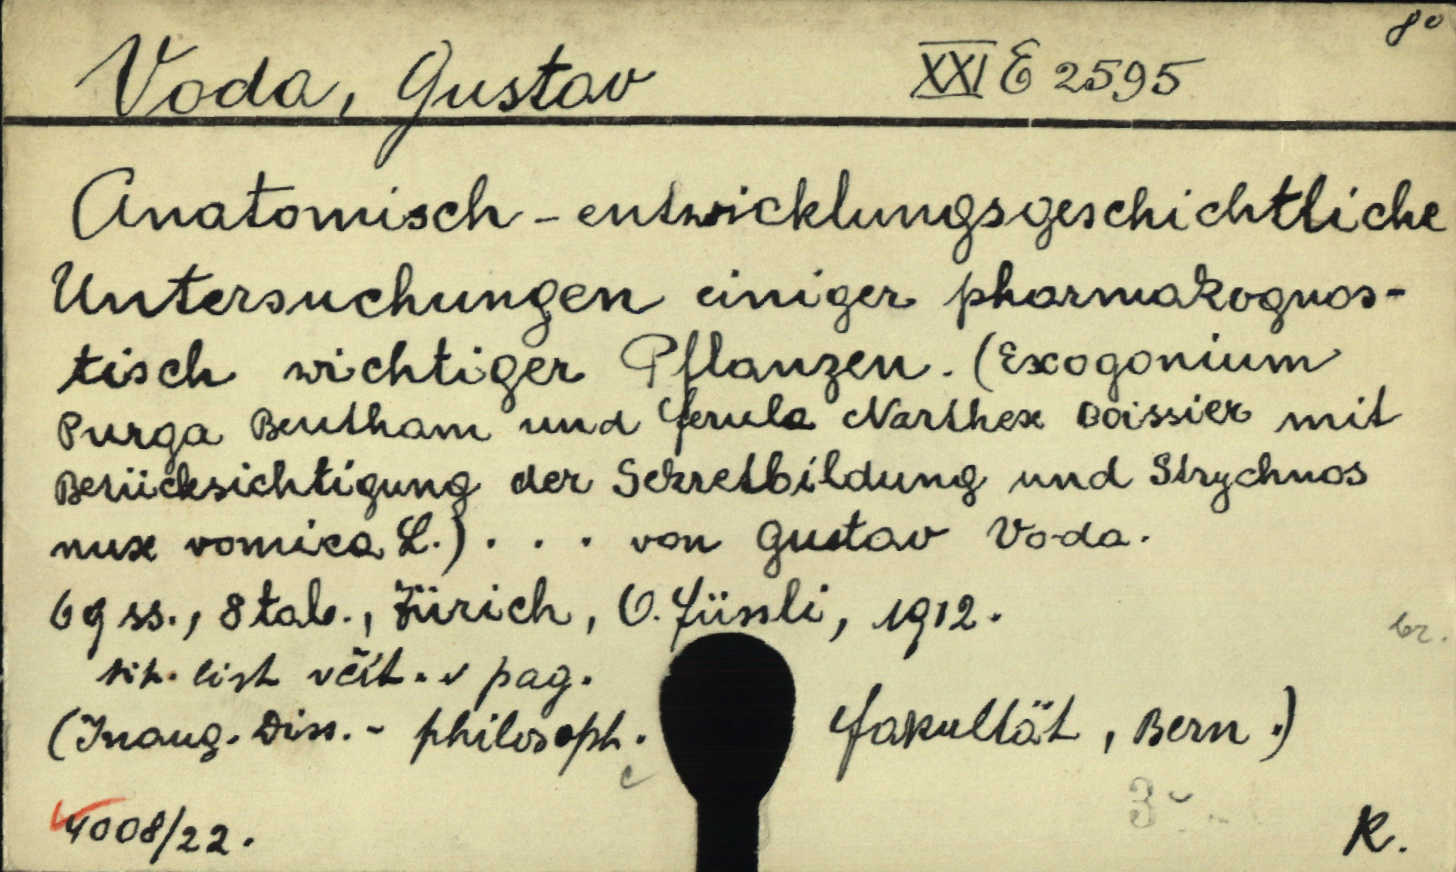 8°
Voda, Gustav XXI E 2595
Anatomisch-entwicklungsgeschichtliche
Untersuchungen einiger pharmakognos-
tisch wichtiger Pflanzen. (Exogonium
Purga Bentham und Ferula Narthex Boissier mit
Berücksichtigung der Sekretbildung und Strychnos
nux vomica L.) . . . von Gustav Voda.
69 ss., 8 tab., Zürich, O. Füssli, 1912.
br.
tit. list včít. v pag.
(Inaug. Diss. - philosoph. Fakultät, Bern.)
4008/22.
K.